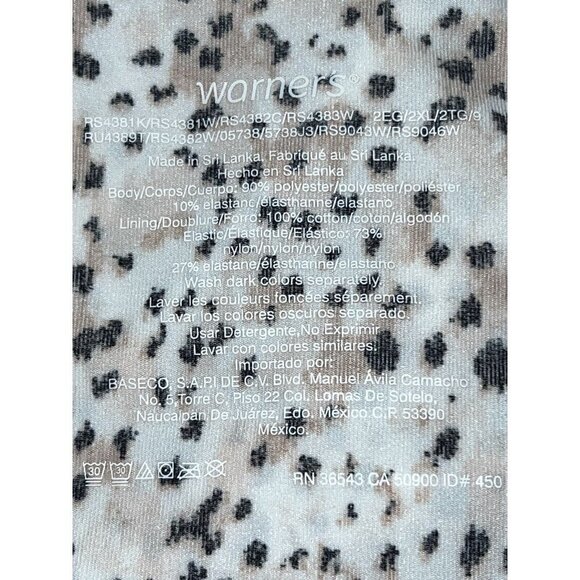 warners®
RS4381K/RS4381W/RS4382C/RS4383W 2EG/2XL/2TG/9
RU4389T/RS4382W/05738/5738J3/RS9043W/RS9046W
Made in Sri Lanka. Fabriqué au Sri Lanka.
Hecho en Sri Lanka
Body/Corps/Cuerpo: 90% polyester/polyester/poliéster
10% elastane/élasthanne/elastano
Lining/Doublure/Forro: 100% cotton/coton/algodón
Elastic/Élastique/Elástico: 73%
nylon/nylon/nylon
27% elastane/élasthanne/elastano
Wash dark colors separately.
Laver les couleurs foncées séparément.
Lavar los colores oscuros separado
Usar Detergente,No Exprimir
Lavar con colores similares.
Importado por:
BASECO, S.A.P.I DE C.V. Blvd. Manuel Ávila Camacho
No. 5,Torre C, Piso 22 Col. Lomas De Sotelo,
Naucalpan De Juárez, Edo. México C.P. 53390
México.
30 30 RN 36543 CA 50900 ID# 450